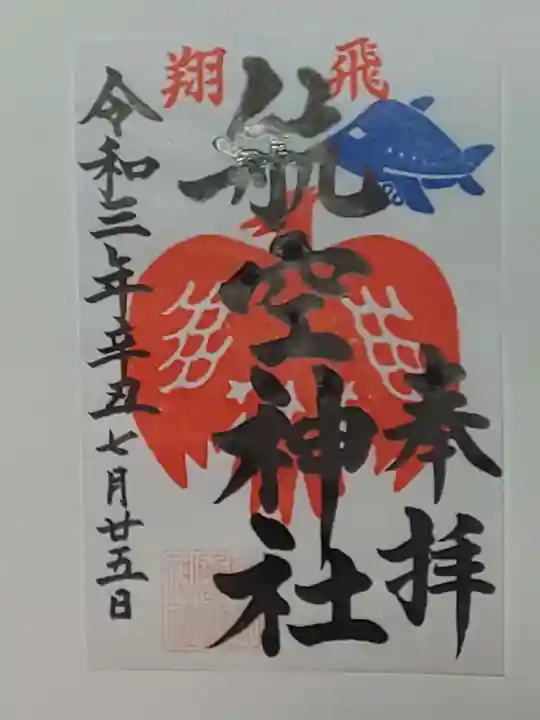 飛翔
奉拝
航空神社
令和三年辛丑七月廿五日